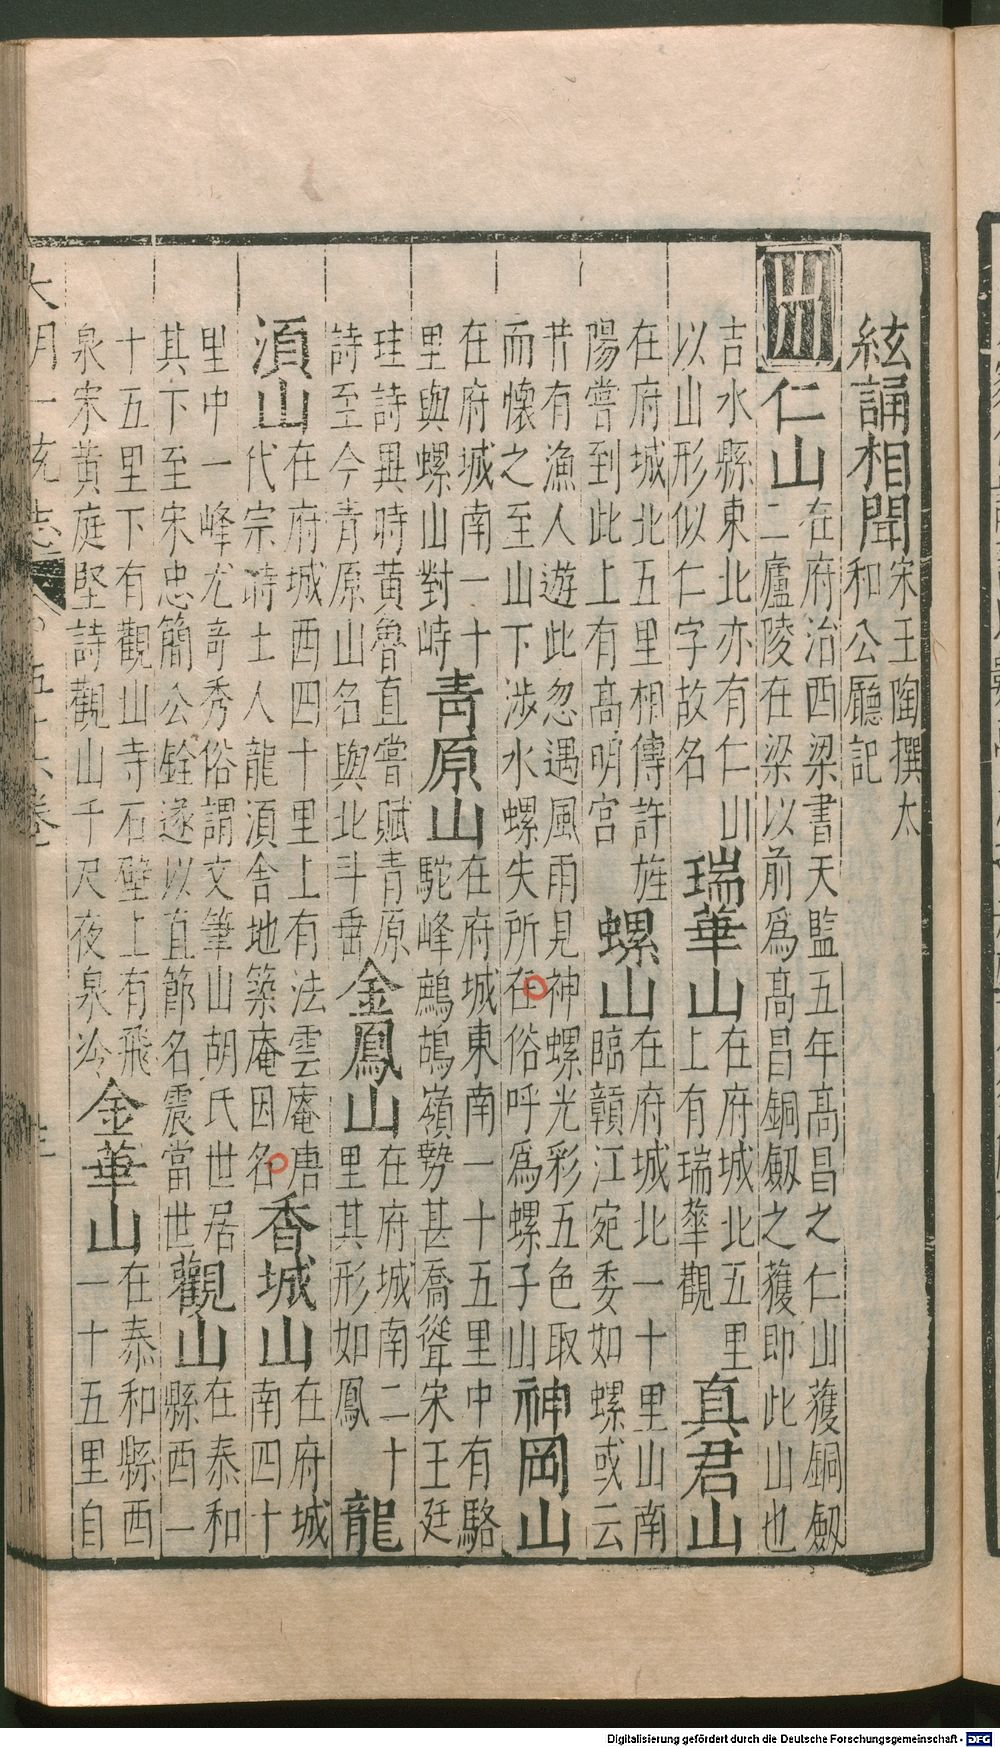 絃誦相聞
宋王陶撰太
和公廳記
山川
仁山
在府治西梁書天監五年高昌之仁山獲銅劒
二廬陵在梁以前爲高昌銅劒之獲即此山也
吉水縣東北亦有仁山
以山形似仁字故名
瑞華山
在府城北五里
上有瑞華觀
真君山
在府城北五里相傳許旌
陽嘗到此上有高明宮
螺山
在府城北一十里山南
臨贛江宛委如螺或云
昔有漁人遊此忽遇風雨見神螺光彩五色取
而懷之至山下涉水螺失所在俗呼爲螺子山
神岡山
在府城南一十
里與螺山對峙
青原山
在府城東南一十五里中有駱
駝峰鷓鴣嶺勢甚喬聳宋王廷
珪詩異時黄魯直嘗賦青原
詩至今青原山名與北斗垂
金鳳山
在府城南二十
里其形如鳳
龍
湏山
在府城西四十里上有法雲庵唐
代宗時士人龍湏舍地築庵因名
香城山
在府城
南四十
里中一峰尤竒秀俗謂文筆山胡氏世居
其下至宋忠簡公銓遂以直節名震當世
觀山
在泰和
縣西一
十五里下有觀山寺石壁上有飛
泉宋黄庭堅詩觀山千尺夜泉泠
金華山
在泰和縣西
一十五里自
大明一統志 五十六卷
Digitalisierung gefördert durch die Deutsche Forschungsgemeinschaft - DFG